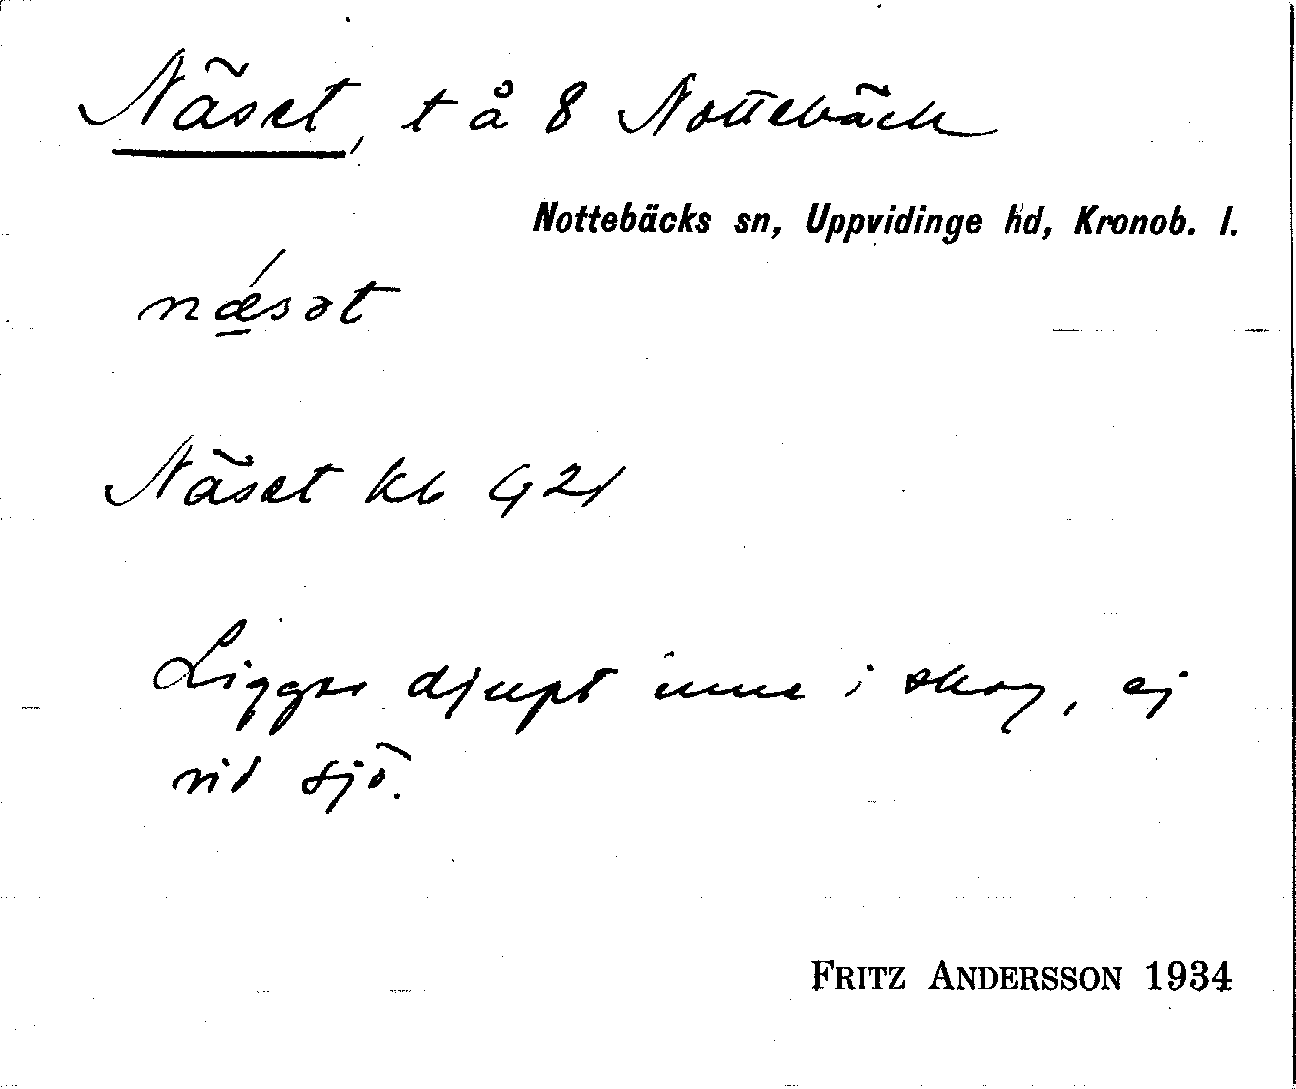 Näset, t å 8 Nottebäck
Nottebäcks sn, Uppvidinge hd, Kronob. l.
nǽ̱sət
Näset kb G 21
Ligger djupt inne i skog, ej
vid sjö.
FRITZ ANDERSSON 1934